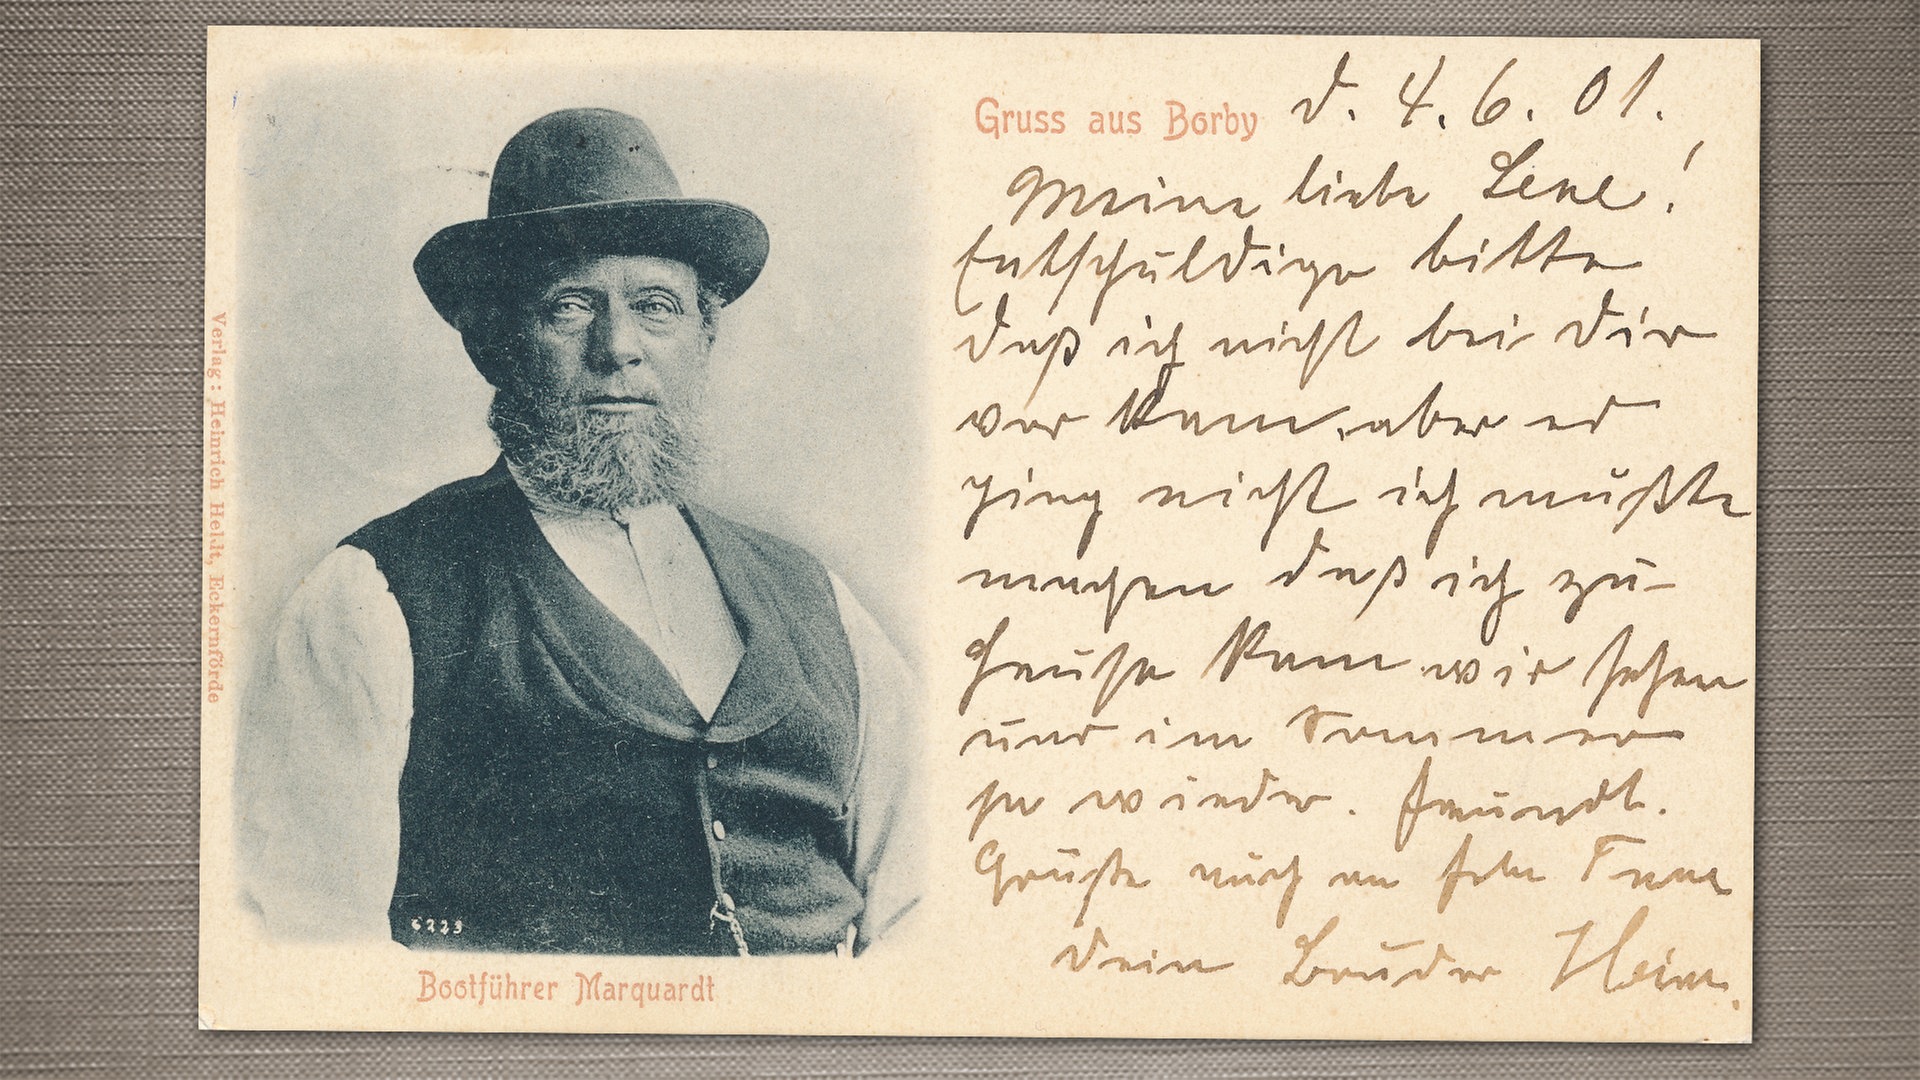 Gruss aus Borby d. 4. 6. 01.
Meine liebe Lene!
Entschuldige bitte
daß ich nicht bei dir
vor kam, aber es
ging nicht ich mußte
machen daß ich zu-
hause kam wir sehen
uns im Sommer
ja wieder. freundl.
Grüße auch an
dein Bruder Hein.
Verlag: Heinrich Heldt, Eckernförde
6223
Bootführer Marquardt